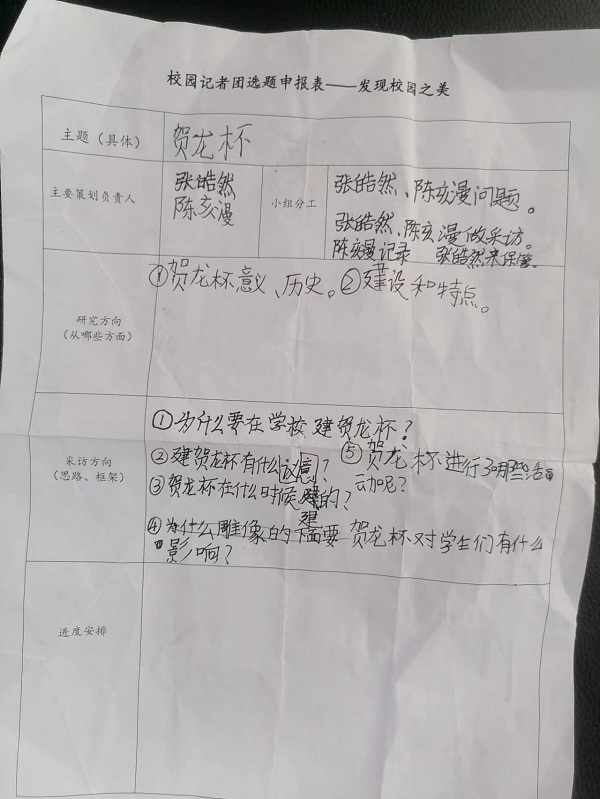 校园记者团选题申报表——发现校园之美
主题（具体）
贺龙杯
主要策划负责人
张皓然
陈亥漫
小组分工
张皓然、陈亥漫问题。
张皓然、陈亥漫做采访。
陈亥漫记录 张皓然来保管。
研究方向
（从哪些方面）
①贺龙杯意义、历史。②建设和特点。
采访方向
（思路、框架）
①为什么要在学校建贺龙杯？
②建贺龙杯有什么意？
⑤贺龙杯进行了哪些活动呢？
③贺龙杯在什么时候建的？
④为什么雕像的下面要 贺龙杯对学生们有什么
影响？
进度安排